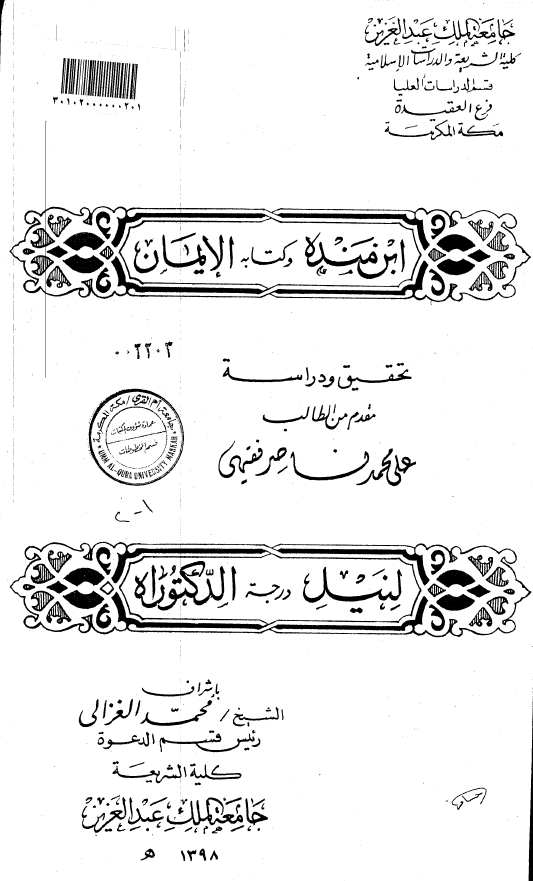 جامعة الملك عبد العزيز
كلية الشريعة والدراسات الإسلامية
قسم الدراسات العليا
فرع العقيدة
مكة المكرمة
٣٠١٠٢٠٠٠٠٠٠٢٠١
ابن منده وكتابه الإيمان
٠٠٢٢٠٣
تحقيق ودراسة
مقدم من الطالب
على محمد ناصر فقيهى
جامعة أم القرى / مكة المكرمة
عمادة شؤون المكتبات
قسم المخطوطات
UMM AL-QURA UNIVERSITY MAKKAH
لنيل درجة الدكتوراه
بإشراف
الشيخ / محمد الغزالى
رئيس قسم الدعوة
كلية الشريعة
جامعة الملك عبد العزيز
١٣٩٨ هـ